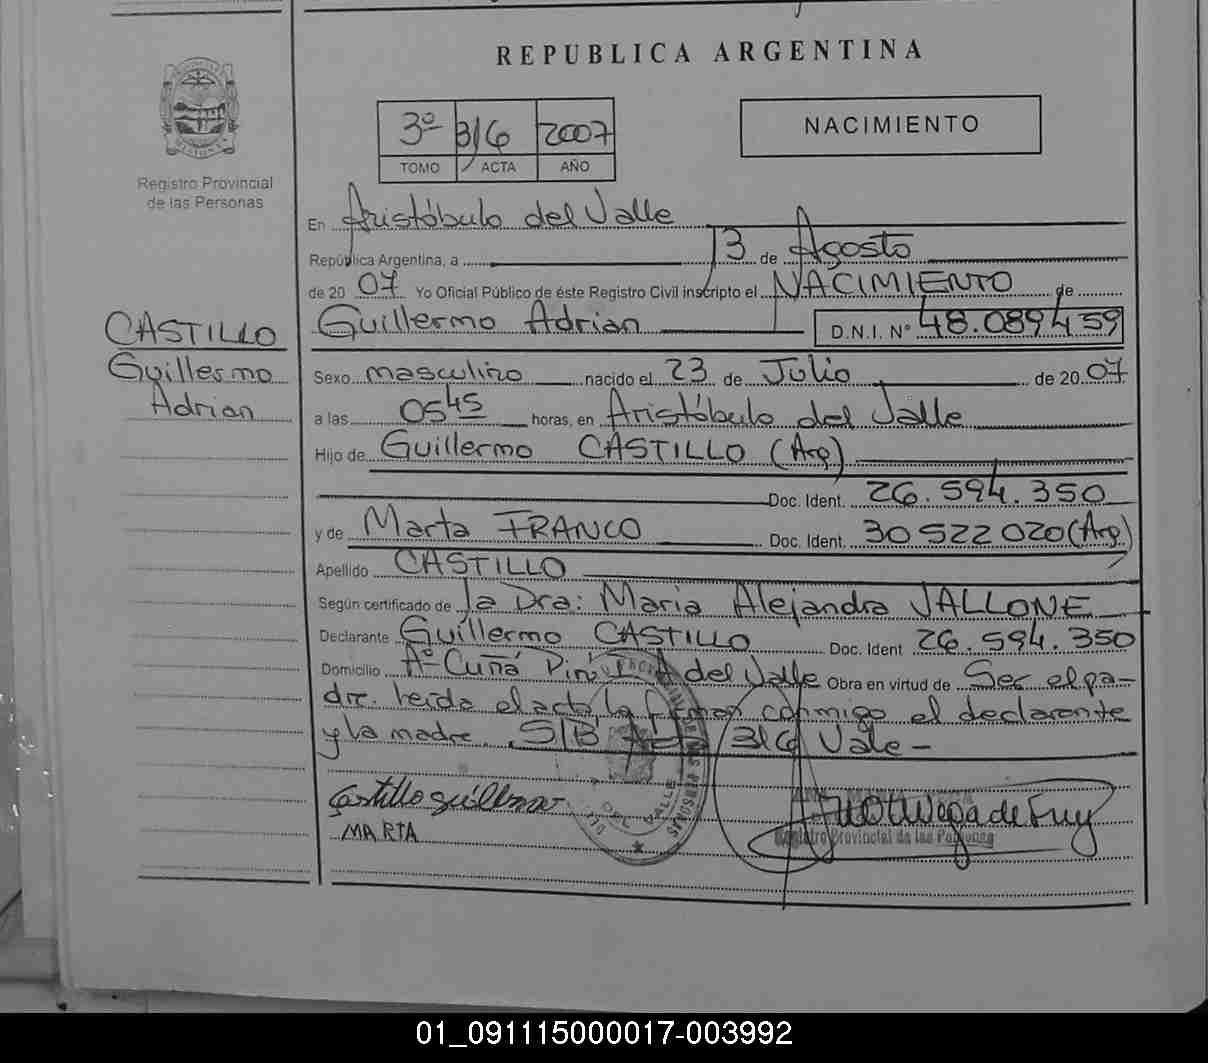 REPUBLICA ARGENTINA
3º 316 2007
TOMO ACTA AÑO
NACIMIENTO
Registro Provincial
de las Personas
En Aristóbulo del Valle
República Argentina, a 13 de Agosto
de 20 07 Yo Oficial Público de éste Registro Civil inscripto el NACIMIENTO de
Guillermo Adrian D.N.I. Nº 48.089459
CASTILLO
Guillermo
Adrian
Sexo masculino nacido el 23 de Julio de 20 07
a las 05 45 horas, en Aristóbulo del Valle
Hijo de Guillermo CASTILLO (Arg)
Doc. Ident. 26.594.350
y de Marta FRANCO Doc. Ident. 30522020 (Arg)
Apellido CASTILLO
Según certificado de la Dra: Maria Alejandra VALLONE
Declarante Guillermo CASTILLO Doc. Ident 26.594.350
Domicilio Aº Cuñá Pirú I A del Valle Obra en virtud de Ser el pa-
dre. Leída el acta, la firman conmigo el declarante
y la madre. S/B 316 Vale-
Castillo guillermo
MARTA
Registro Provincial de las Personas
01_091115000017-003992